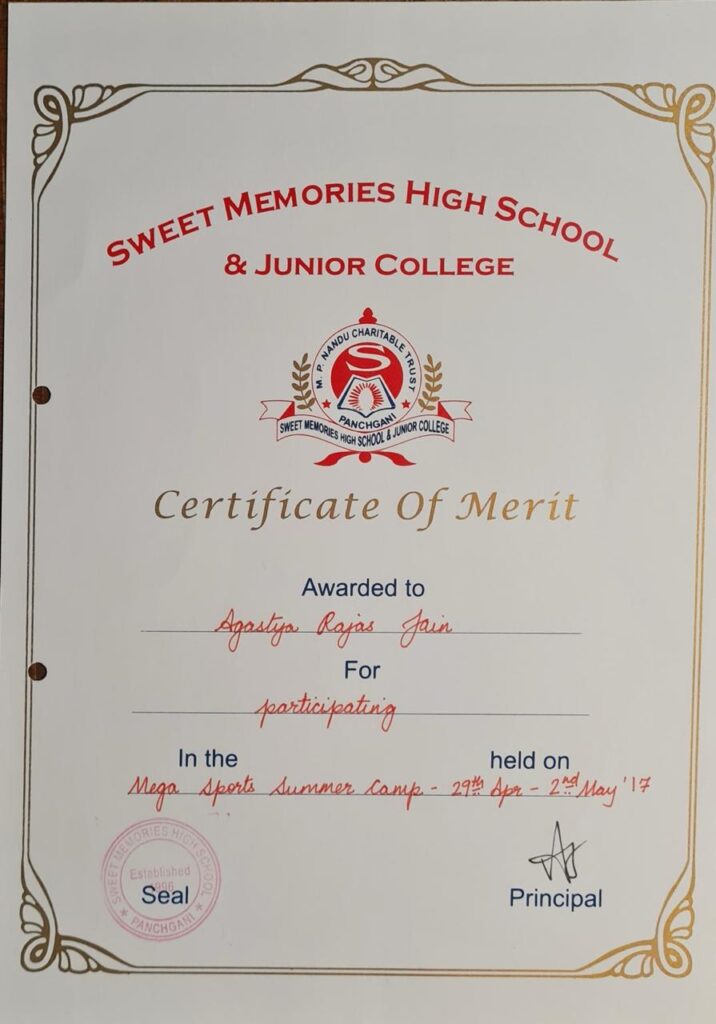 SWEET MEMORIES HIGH SCHOOL
& JUNIOR COLLEGE
M. P. NANDU CHARITABLE TRUST
S
PANCHGANI
SWEET MEMORIES HIGH SCHOOL & JUNIOR COLLEGE
Certificate Of Merit
Awarded to
Agastya Rajas Jain
For
participating
In the held on
Mega Sports Summer Camp - 29th Apr - 2nd May '17
SWEET MEMORIES HIGH SCHOOL
Established
1996
PANCHGANI
Seal Principal